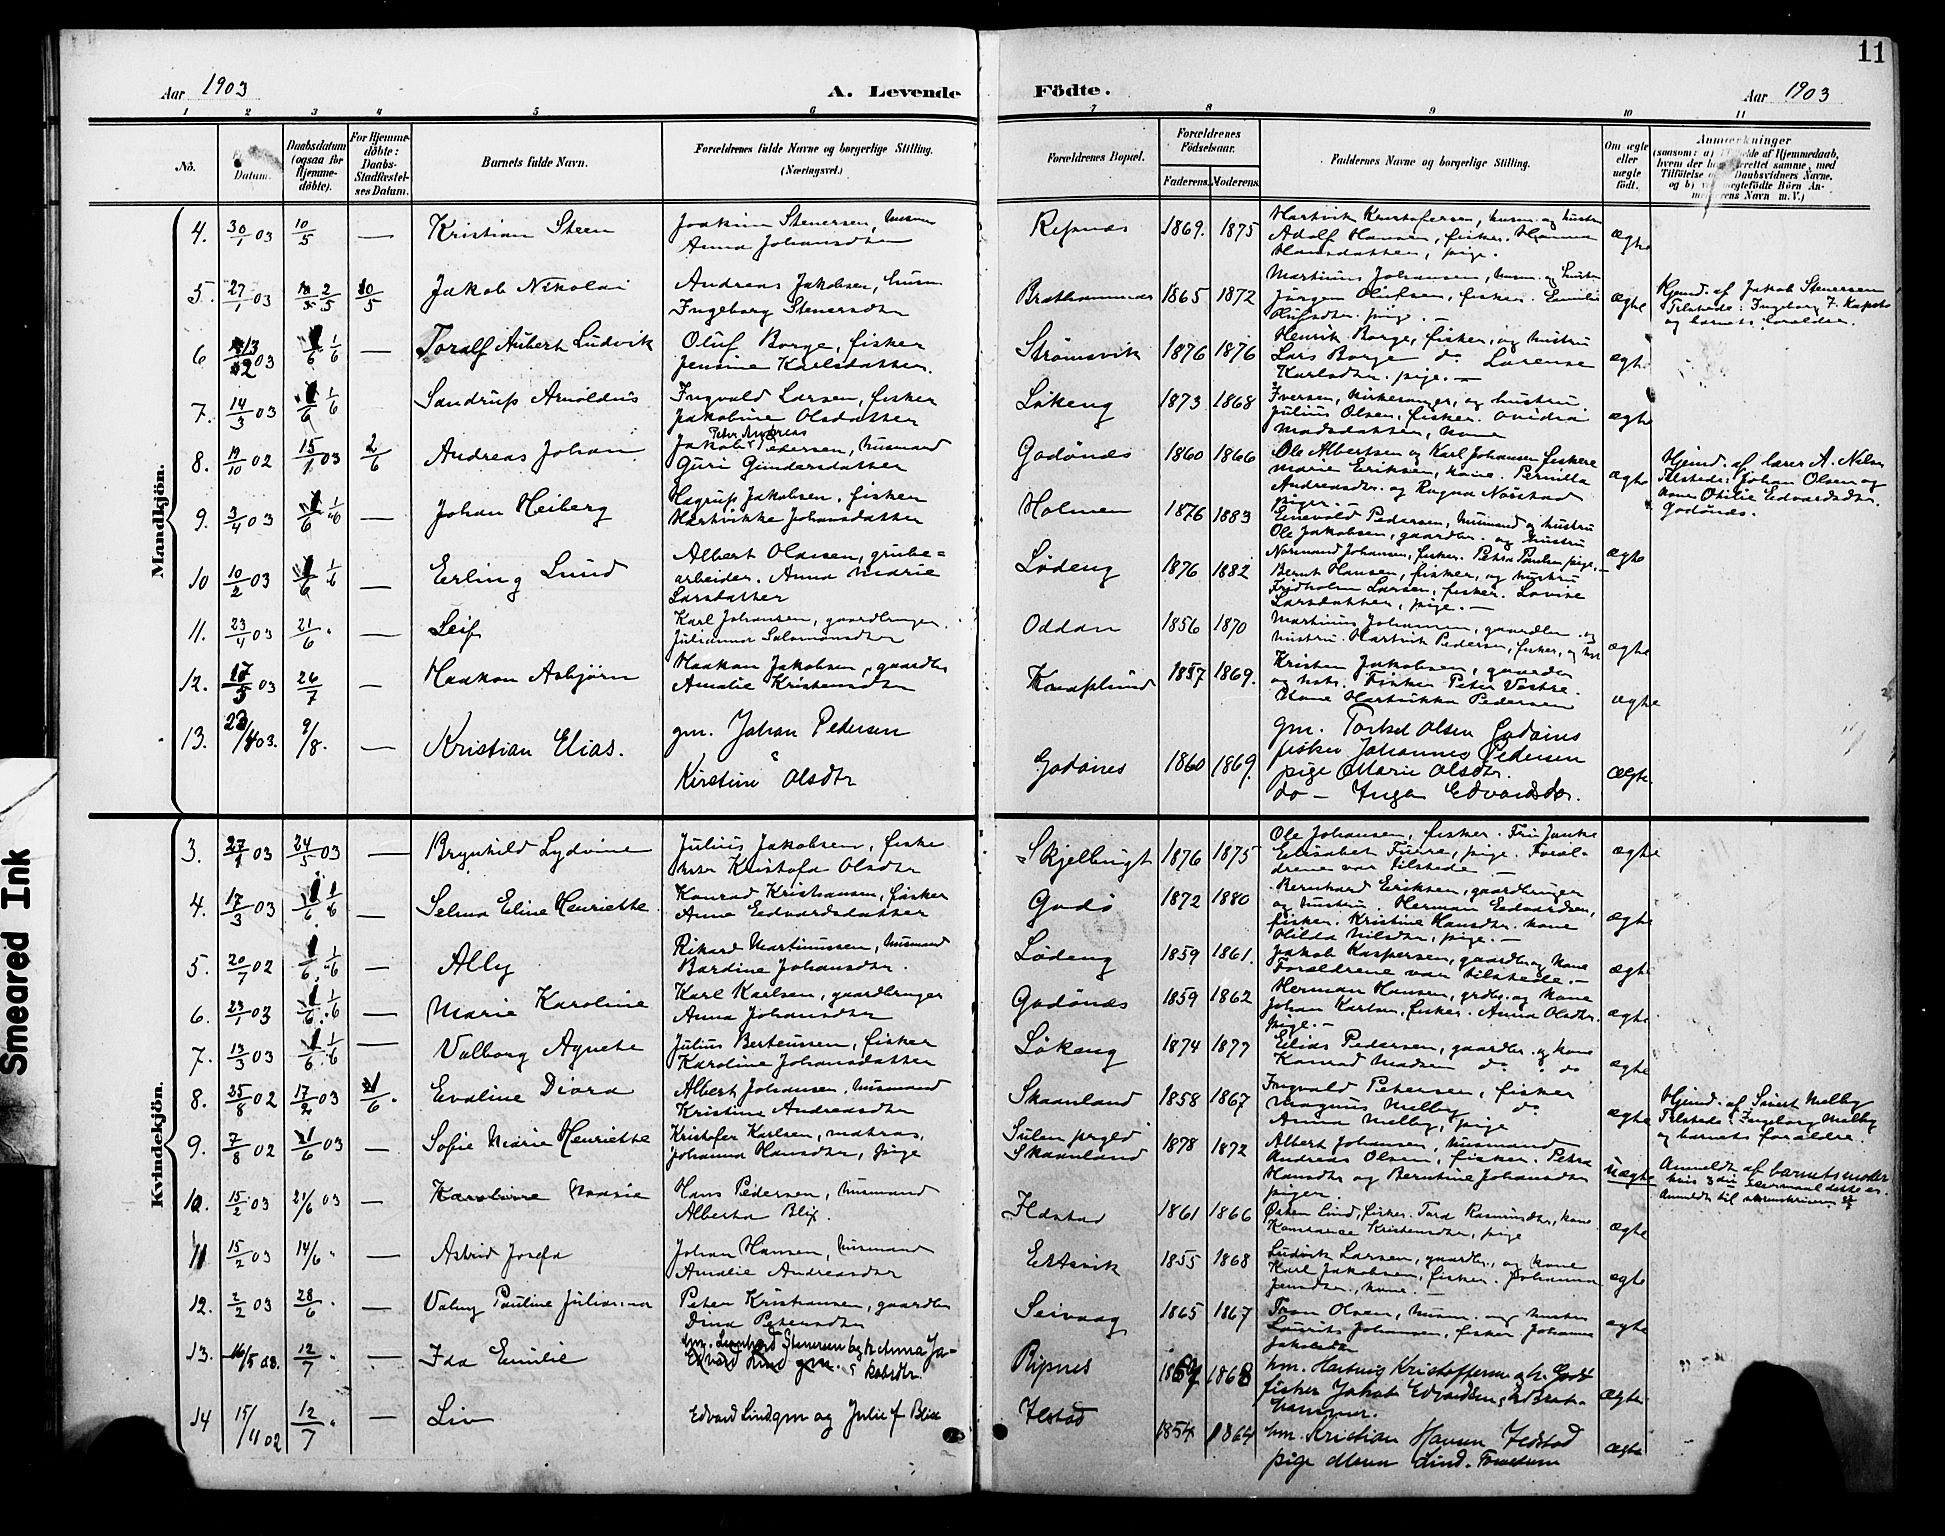 11
Aar 1903
A. Levende Födte.
Aar 1903
1 2 3 4 5 6 7 8 9 10 11
Nô.
Datum.
Daabsdatum (ogsaa for Hjemmedöbte).
For Hjemmedöbte: Daabs-Stadfæstelses Datum.
Barnets fulde Navn.
Forældrenes fulde Navne og borgerlige Stilling. (Næringsvei.)
Forældrenes Bopæl.
Forældrenes Födselsaar.
Faderens. Moderens.
Faddernes Navne og borgerlige Stilling.
Om ægte eller uægte födt.
Anmærkninger
Mandkjön.
4. 30/1 03 10/5 — Kristian Steen Joakim Stenersen, husm Repnæs 1869. 1875 Hartvik Kristofersen, husm. og hustru ægte
Anna Johansdatter Adolf Hansen, fisker. Hanna
Hansdatter, pige.
5. 27/1 03 2/5 10/5 Jakob Nikolai Andreas Jakobsen, husm 1865 1872 Martinus Johansen, husm. og hustru ægte Hjemd. af Jakob Stenersen
Ingeborg Stenersdtr Jörgen Olufsen, fisker. Emilie Tilstede: Ingeborg
Olufsdtr. pige. — og barnets forældre.
6 03 1/6 — Toralf Aubert Ludvik Oluf Borge, fisker Strømsvik 1876 1876 Henrik Borge, fisker, og hustru ægt
Jensine Karlsdatter. Lars Borge do Lorense
Karlsdtr. pige. —
7. 14/3 03 1/6 Sandrup Arnoldus Ingvald Larsen, fisker Løkeng 1873 1868 Iversen, kirkesanger, og hustru ægte
Jakobine Olsdatter Julius Olsen, fisker.
Madsdatter, kone
8. 19/10 02 15/1 03 2/6 Andreas Johan Peter Andreas Godønes 1860 1866 Ole Albertsen og Karl Johansen fiskere ægte Hjemd. af lærer A. Nilsen
Jakob Pedersen, husmand Marie Eriksen, kone. Pernilla Tilstede: Johan Olsen og
Guri Gundersdatter Andreasdtr. og Ragna Norstad kone Otilie Edvardsdtr.
Piger. — Godønes.
9. 3/4 03 1/6 — Johan Heiberg Hagrup Jakobsen, fisker Holmen 1876 1883 Pedersen, husmand og hustru ægte
Hartvikke Johansdatter Ole Jakobsen, gaardbr. og hustru
10 10/2 03 1/6 — Erling Lund Albert Olassen, grube= Løding 1876 1882 Normand Johansen, fisker. Petra Paulsen pige. —
arbeider. Anna Marie Bernt Hansen, fisker, og hustru
Larsdatter Fridholm Larsen, fisker. Lovise
Larsdatter, pige. —
11. 23/4 03 21/6 — Leif Karl Johansen, gaardbruger Oddan 1856 1870 Martinus Johannesen, gaardbr. og ægte
Julianna Salomonsdtr hustru. Hartvik Pedersen, fisker, og hst
12. 17/5 03 26/7 — Haakon Asbjørn Haakon Jakobsen, gaardbr Knaplund 1857 1869. Kristen Jakobsen, gaardbr ægte
Amalie Kristensdtr og hst. Fisker Peter Vestre.
Kone Hartvikka Pedersen
13. 03. 9/8. — Kristian Elias. gm. Johan Pedersen Godønes 1860 1869. gm. Torkel Olsen Godønes ægte.
Kirstine Olsdtr fisker Johannes Pedersen
pige Marie Olsdtr.
do — Inga Edvardsdtr.
Kvindekjön.
3. 27/1 03 24/5 03 — Brynhild Lydvine Julius Jakobsen, fiske Skjelbugt 1876 1875 Ole Johansen, fisker. Fru Janke ægte
hstr Kristofa Olsdtr Elisabet Furre, pige. Foræl-
drene var tilstede —
4. 17/3 03 1/6 — Selma Eline Henriette Konrad Kristiansen, fisker Godø 1872 1880 Bernhard Eriksen, gaardbruger ægte
Anna Eedvardsdatter og hustru. Herman Eedvardsen,
fisker. Kristine Hansdtr. kone
Hilda Nilsdtr, pige. —
5. 20/7 02 1/6 — Ally Rikard Martinussen, husmand Løding 1859 1861. Jakob Kaspersen, gaardbr og kone ægte
Bardine Johansdtr. Forældrene var tilstede. —
6. 23/1 03 1/6 — Marie Karoline Karl Karlsen, gaardbruger Godønes 1859 1862 Herman Hansen, grdbr. og kone ægte
Anna Johansdtr Johan Karlsen, fisker. Anna Olsdtr.
pige. —
7. 13/3 03 1/6 — Valborg Agnete Julius Berteussen, fisker Løkeng 1874 1877 Elias Pedersen, gaardbr. og kone ægte
Karoline Johansdatter Konrad Madsen do . do
8. 25/8 02 17/2 03 1/6. Evaline Diora Albert Johansen, husmand Skaanland 1858 1867 Ingvald Petersen, fisker ægte Hjemd. af Sivert Melby
Kristine Andreasdtr Magnus Melby do Tilstede: Ingeborg Melby
Anna Melby, pige og barnets forældre.
9. 7/8 02 1/6 03 — Sofie Marie Henriette Kristofer Karlsen, matros, Sulen prgld 1878 1872 Albert Johansen, husmand uægte Anmeldt af barnets moder
Johanna Hansdtr, pige Skaanland Andreas Olsen, fisker. Petra hvis 3die leiermaal dette er.
Hansdtr og Berntine Johansdtr
piger.
10. 15/2 03 21/6 03 — Karoline Maasie Hans Pedersen, husmand Ilstad 1861 1866 Østen Lind, fisker. Tora Rasmusdtr, kone. ægte
Alberta Blix. Konstanse Kristensdtr, pige
11 15/2 03 14/6 " — Astrid Josefa Johan Hansen, husmand Ertsvik 1855 1868 Ludvik Larsen, gaardbr., og kone ægte
Amalie Andreasdtr Karl Jakobsen, fisker. Johanna
Jensdtr, kone. —
12. 2/2 03 28/6 . — Valny Pauline Julianna Peter Kristiansen, gaardbr Seivaag 1865 1867 Tron Olsen, husm. og hustru ægte
Dina Petersdtr Laurits Johansen, fisker Johanna
Jakobsdtr
13. 16/5 03. 12/7 " — Ida Emilie hm. Lennhard Stenersen og h Anna Ja- Ripnes 1868 hm. Hartvig Kristoffersen og h. Godø ægte
kobsdtr. fisker Jakob Edvardsen,
14 15/11 02 12/7 " — Liv Edvard Lind gm og Julie f Blix Ilstad 1854 1864 hm. Kristian Hansen Ilstad ægte
pige Maren Lind. Forældrene
Smeared Ink